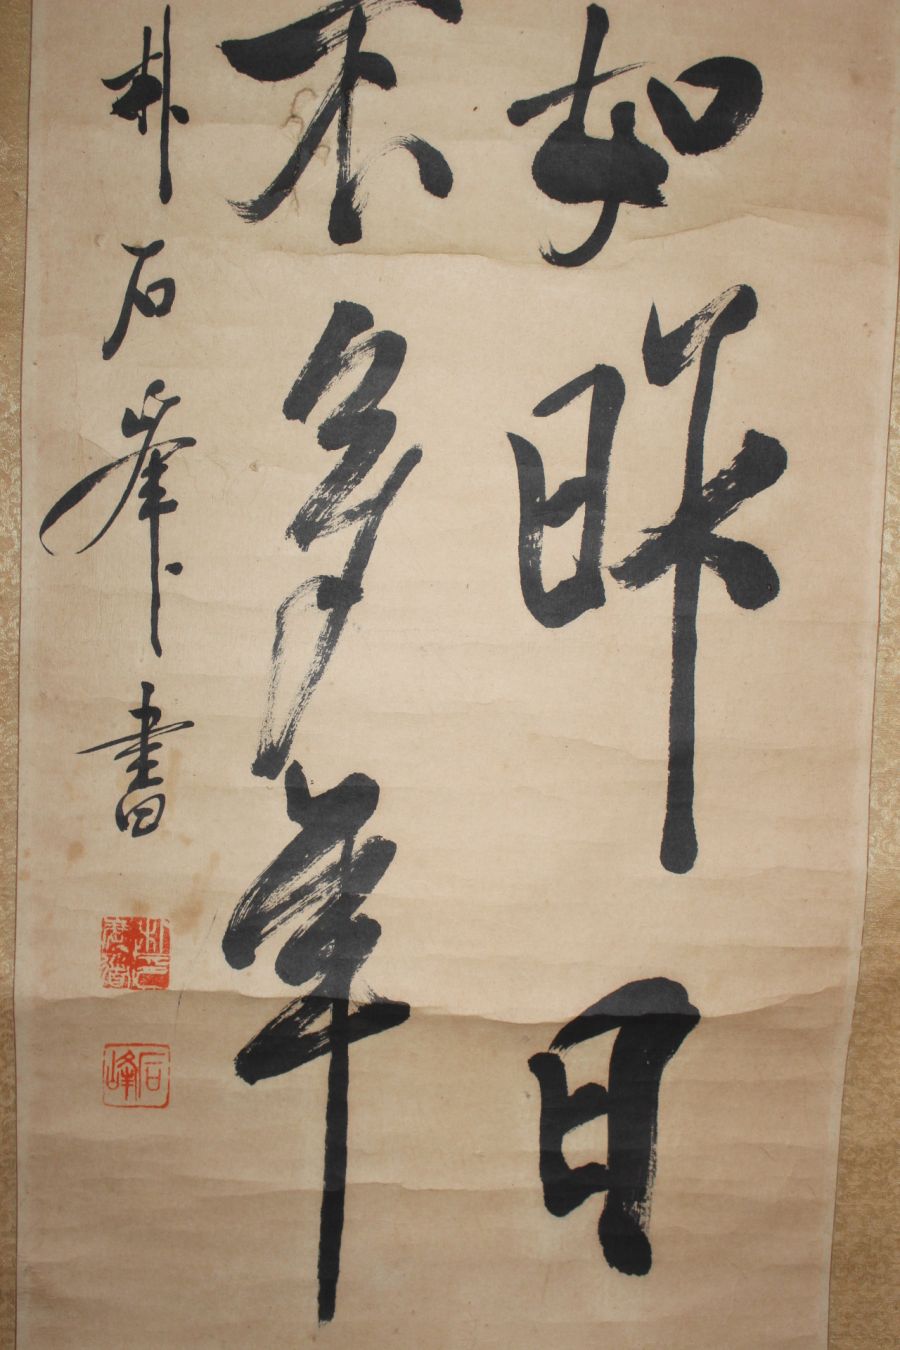 如昨日
不多年
朴石峯書
石峰